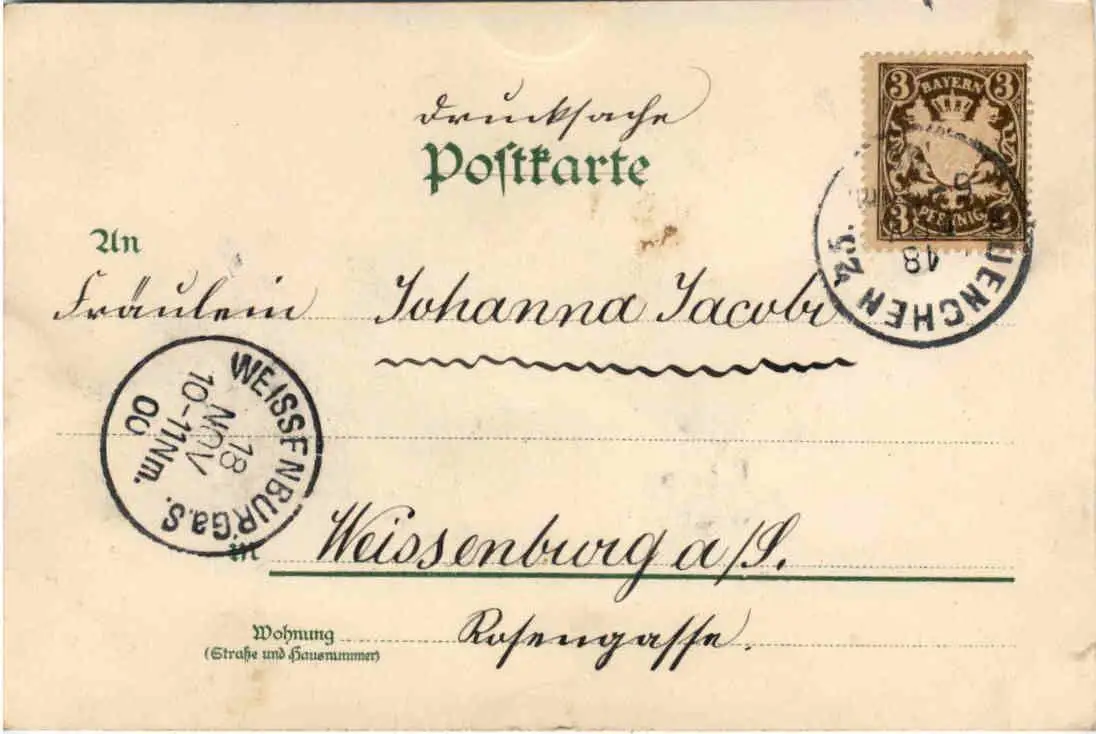 Drucksache
Postkarte
3 BAYERN 3
3 PFENNIG 3
MUENCHEN
18
An
Fräulein Johanna Jacobi
WEISSENBURG a.S.
18
NOV
10-11Nm.
00
in Weissenburg a/S.
Wohnung Rosengasse.
(Straße und Hausnummer)